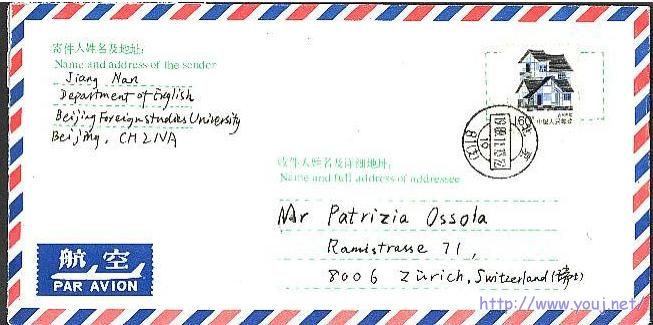 寄件人姓名及地址:
Name and address of the sender
Jiang Nan
Department of English
Beijing Foreign Studies University
Beijing, CHINA
60
中国人民邮政
北京
收件人姓名及详细地址:
Name and full address of addressee
Mr Patrizia Ossola
Ramistrasse 71,
8006 Zürich, Switzerland (瑞士)
航空
PAR AVION
http://www.youj.net/